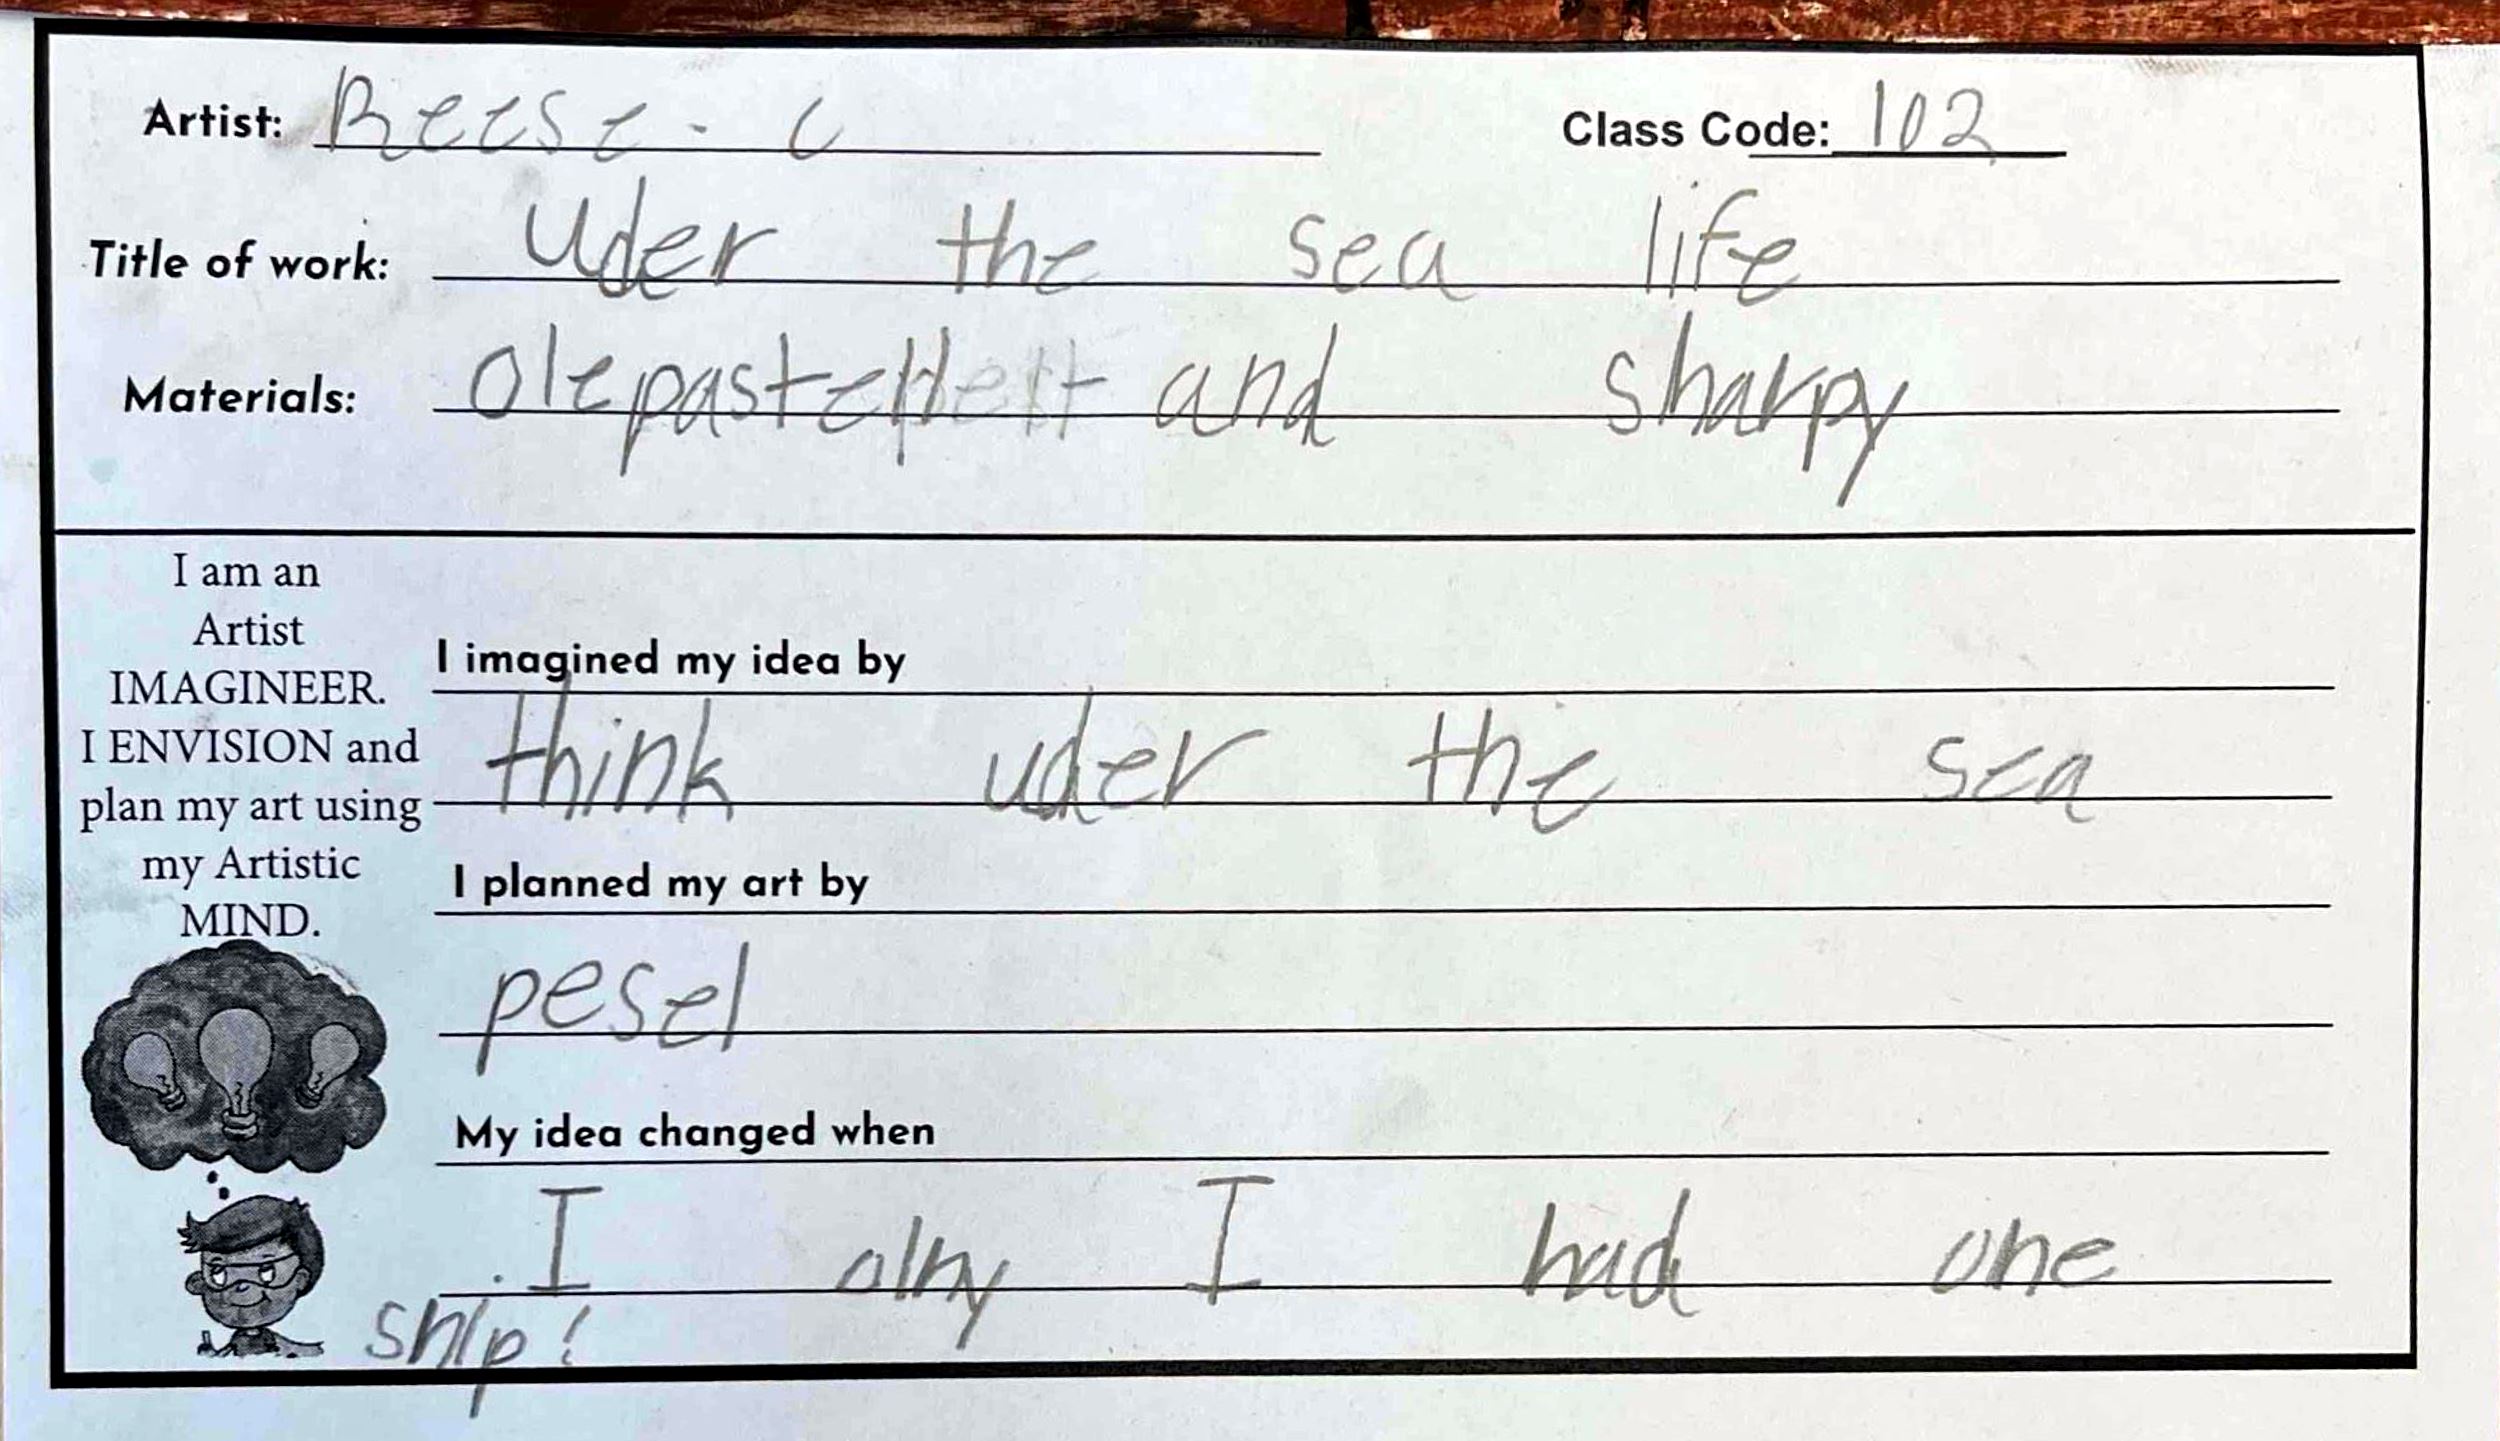 Artist: Reese - C Class Code: 102
Title of work: Uder the sea life
Materials: Olepastell and sharpy
I am an
Artist
IMAGINEER.
I ENVISION and
plan my art using
my Artistic
MIND.
I imagined my idea by
think uder the sea
I planned my art by
pesel
My idea changed when
I olny I had one
ship!